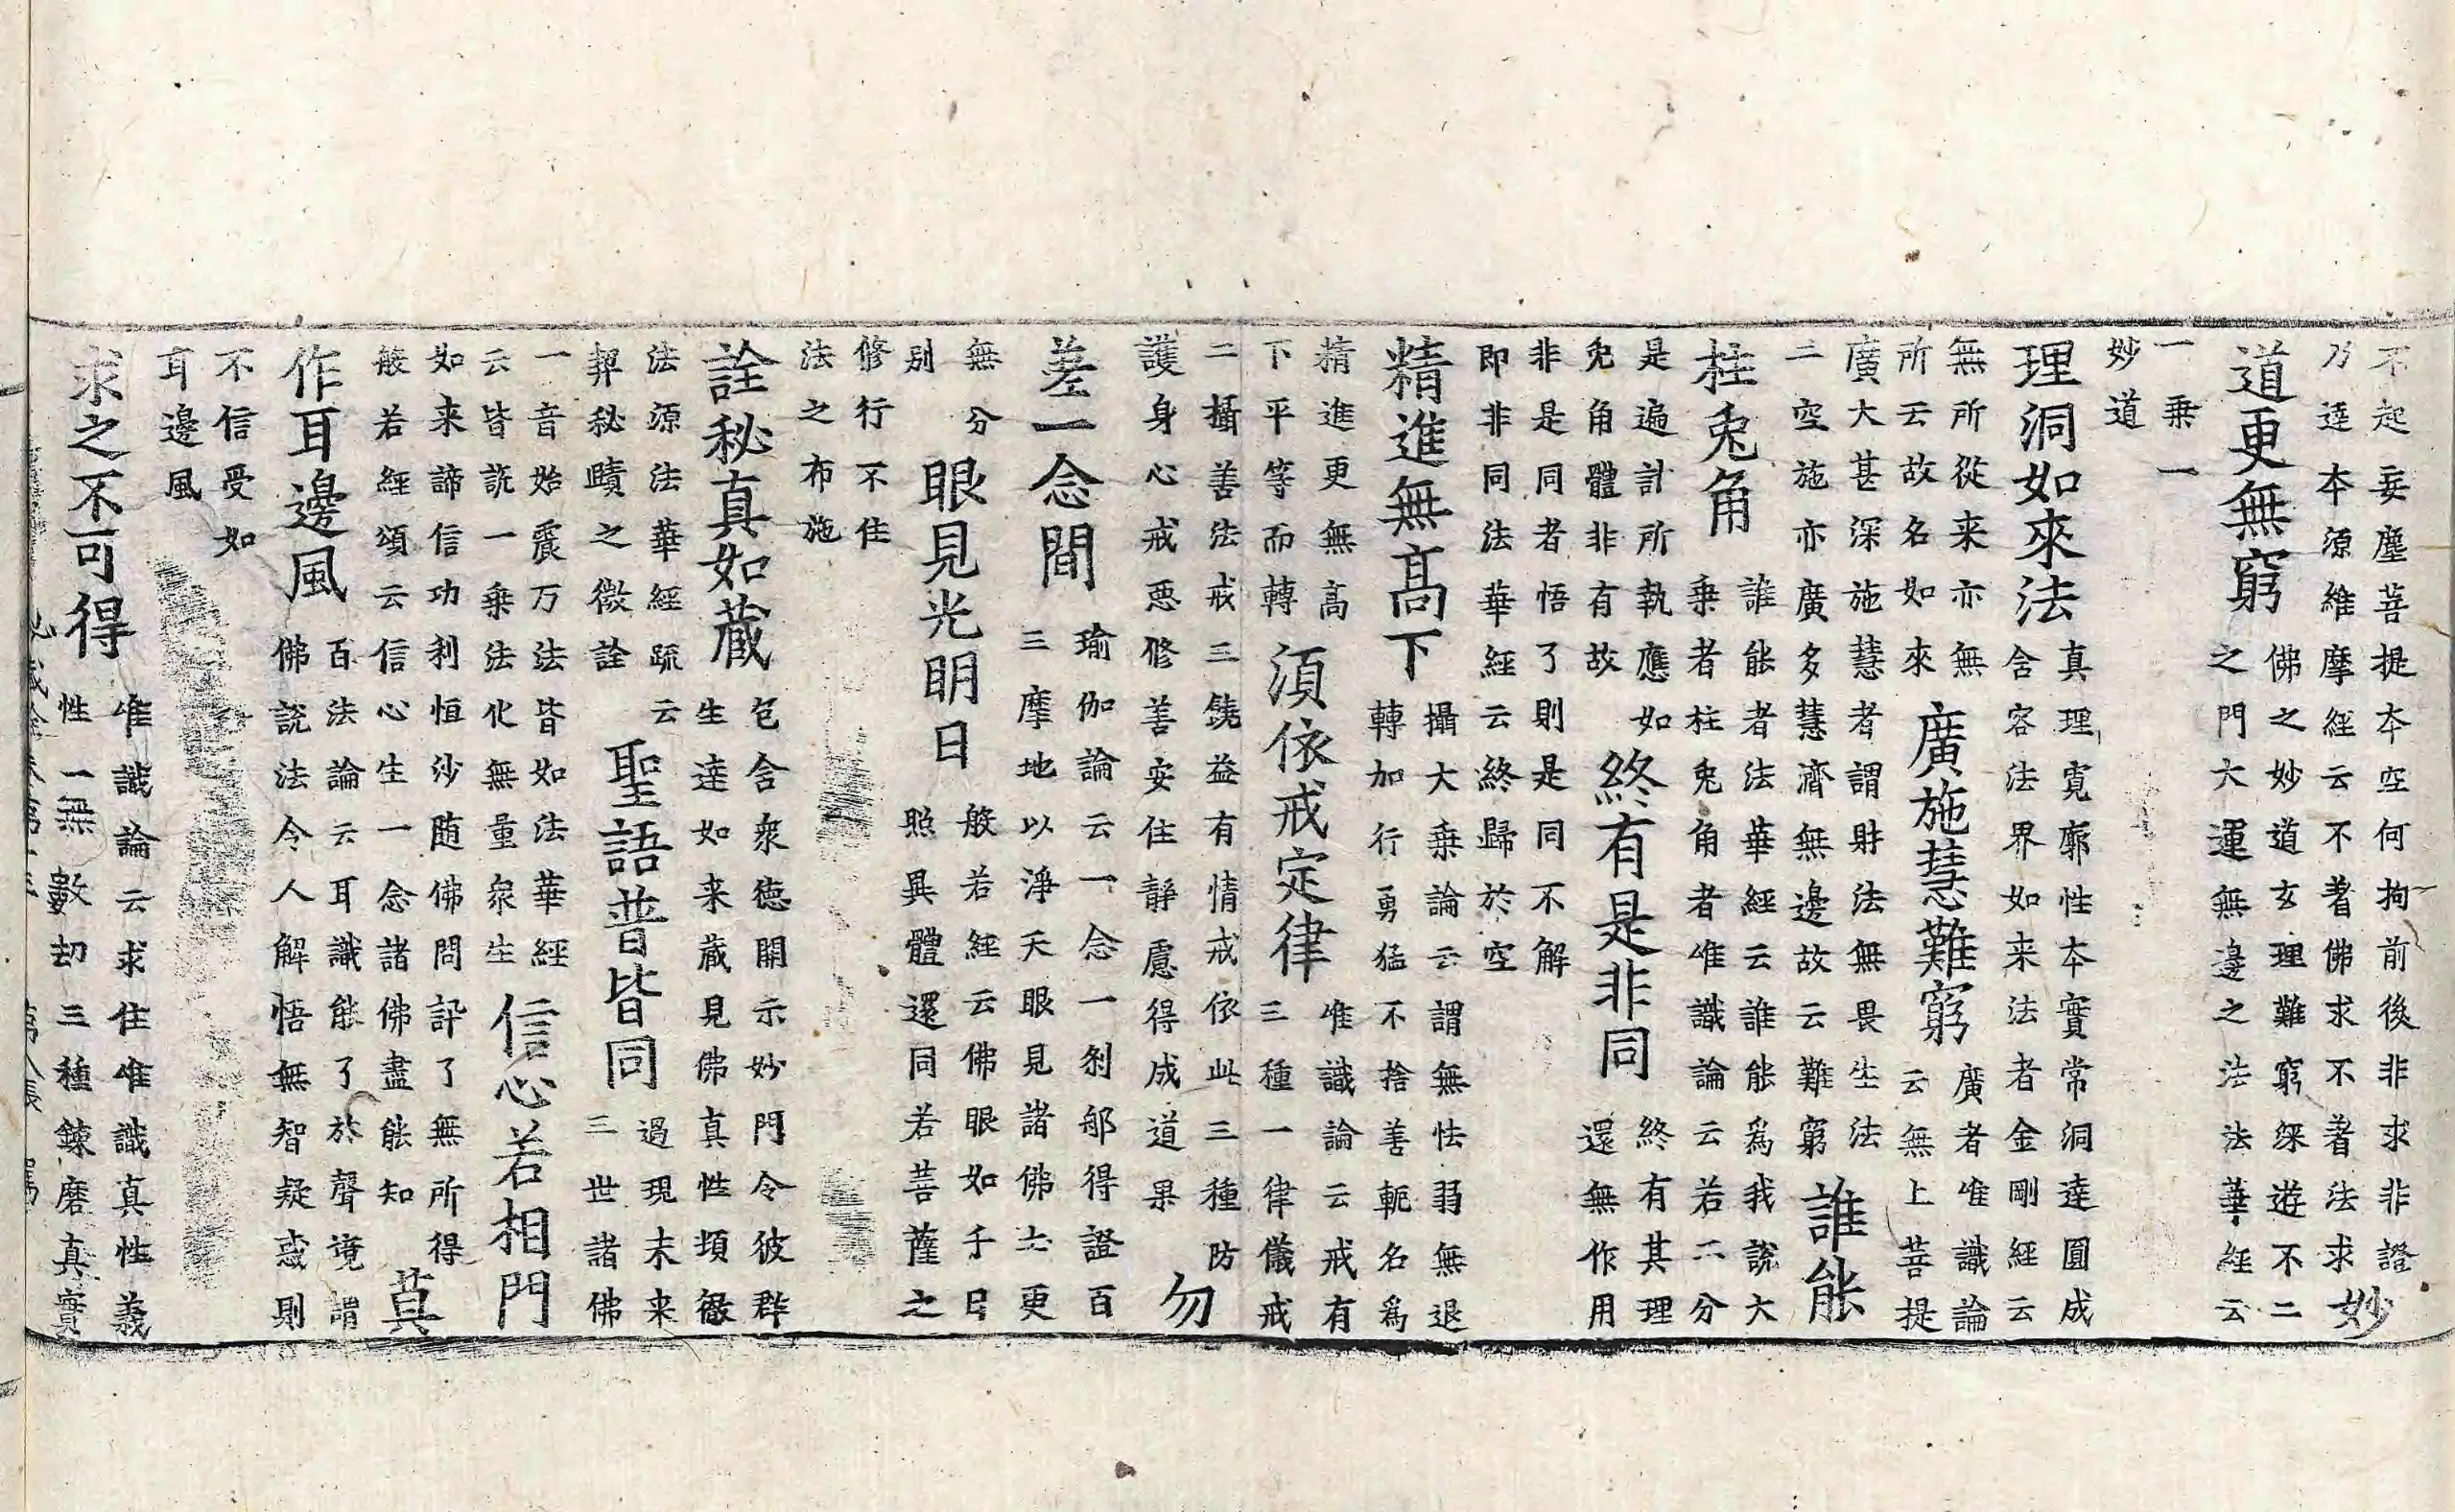 不起妄塵菩提本空何拘前後非求非證
乃達本源維摩經云不著佛求不著法求 妙
道更無窮 佛之妙道玄理難窮深遊不二
之門大運無邊之法法華經云
一乗一
妙道
理洞如來法 真理寛廓性本實常洞達圓成
含容法界如来法者金剛經云
無所從来亦無
所云故名如來 廣施慧難窮 廣者唯識論
云無上菩提
廣大甚深施慧者謂財法無畏生法
二空施亦廣多慧濟無邊故云難窮 誰能
柱兎角 誰能者法華經云誰能為我說大
乗者柱兎角者唯識論云若二分
是遍計所執應如
兎角體非有故 終有是非同 終有其理
還無作用
非是同者悟了則是同不解
即非同法華經云終歸於空
精進無髙下 攝大乗論云謂無怯弱無退
轉加行勇猛不捨善軛名為
精進更無髙
下平等而轉 須依戒定律 唯識論云戒有
三種一律儀戒
二攝善法戒三饒益有情戒依此三種防
護身心戒惡修善安住靜慮得成道果 勿
差一念間 瑜伽論云一念一剎那得證百
三摩地以淨天眼見諸佛士更
無分
別 眼見光明日 般若經云佛眼如千日
照異體還同若菩薩之
修行不住
法之布施
詮秘真如蔵 包含衆徳開示妙門令彼群
生達如来蔵見佛真性頃徹
法源法華經䟽云
契秘賾之微詮 聖語普皆同 過現未来
三世諸佛
一音始震万法皆如法華經
云皆說一乗法化無量衆生 信心若相門
如来諦信功利恒沙随佛問訊了無所得
般若經頌云信心生一念諸佛盡能知 莫
作耳邊風 百法論云耳識能了於聲境謂
佛說法令人解悟無智疑惑則
不信受如
耳邊風
求之不可得 唯識論云求住唯識真性義
性一無數劫三種鍊磨真實